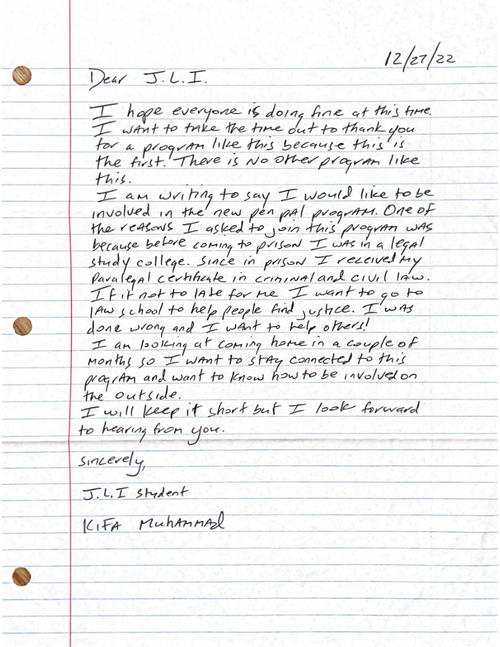 12/27/22
Dear J.L.I.
I hope everyone is doing fine at this time.
I want to take the time out to thank you
for a program like this because this is
the first. There is no other program like
this.
I am writing to say I would like to be
involved in the new pen pal program. One of
the reasons I asked to join this program was
because before coming to prison I was in a legal
study college. Since in prison I received my
Paralegal certificate in criminal and civil law.
If it not to late for me I want to go to
law school to help people find justice. I was
done wrong and I want to help others!
I am looking at coming home in a couple of
months so I want to stay connected to this
program and want to know how to be involved on
the outside.
I will keep it short but I look forward
to hearing from you.
Sincerely,
J.L.I Student
Kifa Muhammad